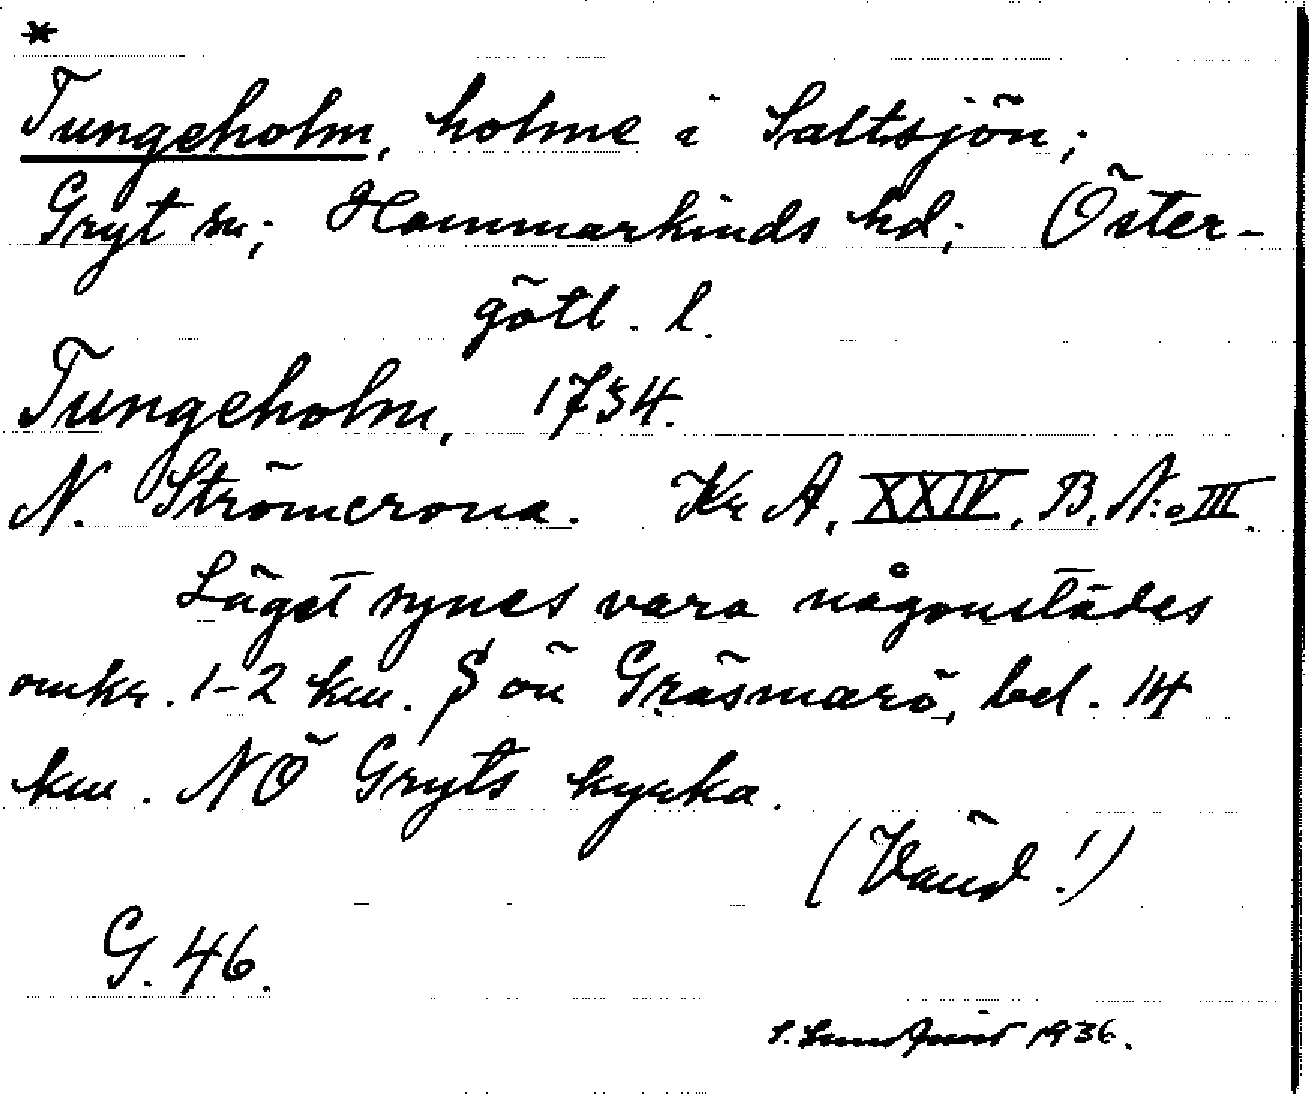 *
Tungeholm, holme i Saltsjön;
Gryt sn; Hammarkinds hd; Öster-
götl. l.
Tungeholm, 1734.
N. Strömcrona. Kr A, XXIV, B, N:o III.
Läget synes vara någonstädes
omkr. 1-2 km. S ön Gräsmarö, bel. 14
km. NÖ Gryts kyrka.
(Vänd!)
G. 46.
S. Lundqvist 1936.